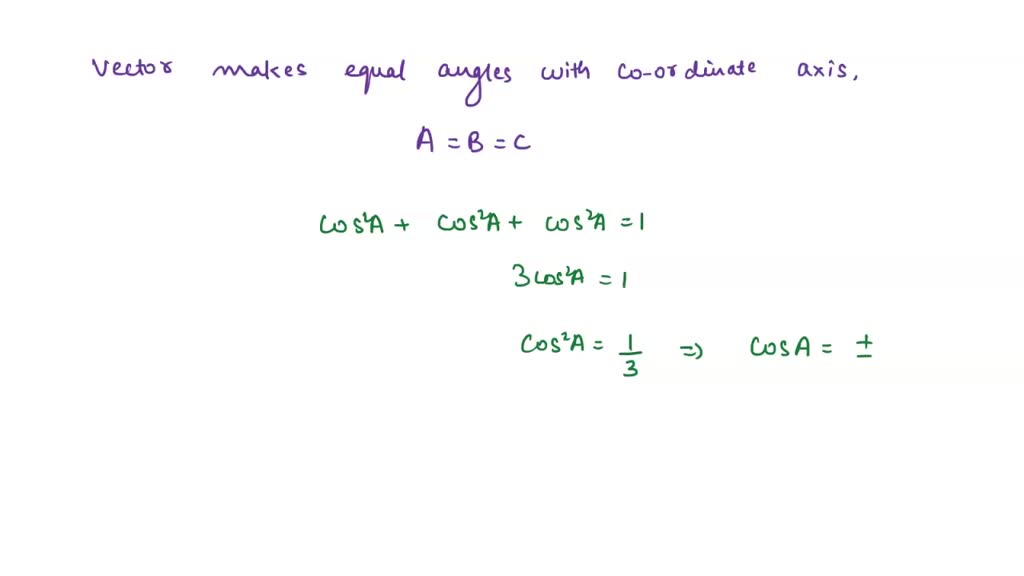 Vector makes equal angles with co-ordinate axis.
A = B = C
cos²A + cos²A + cos²A = 1
3cos²A = 1
cos²A = 1/3 ⇒ cos A = ±